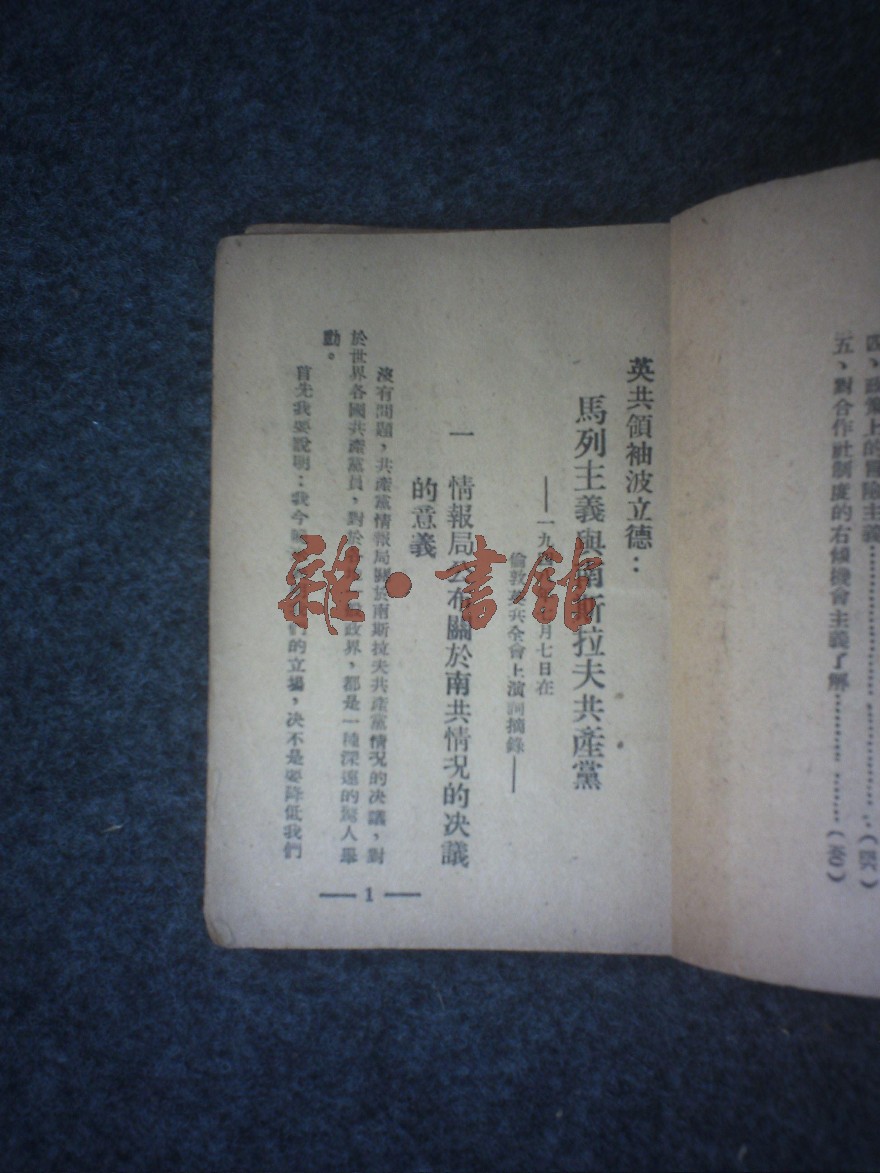 四、政策上的冒險主義………………(
五、對合作社制度的右傾機會主義了解………………(
英共領袖波立德：
馬列主義與南斯拉夫共產黨
——一九四 月七日在
倫敦英共全會上演詞摘錄——
一 情報局公布關於南共情況的決議
的意義
沒有問題，共產黨情報局關於南斯拉夫共產黨情況的決議，對
於世界各國共產黨員，對於 政界，都是一種深遠的驚人舉
動。
首先我要說明：我今 們的立場，決不是要降低我們
— 1 —
雜·書館